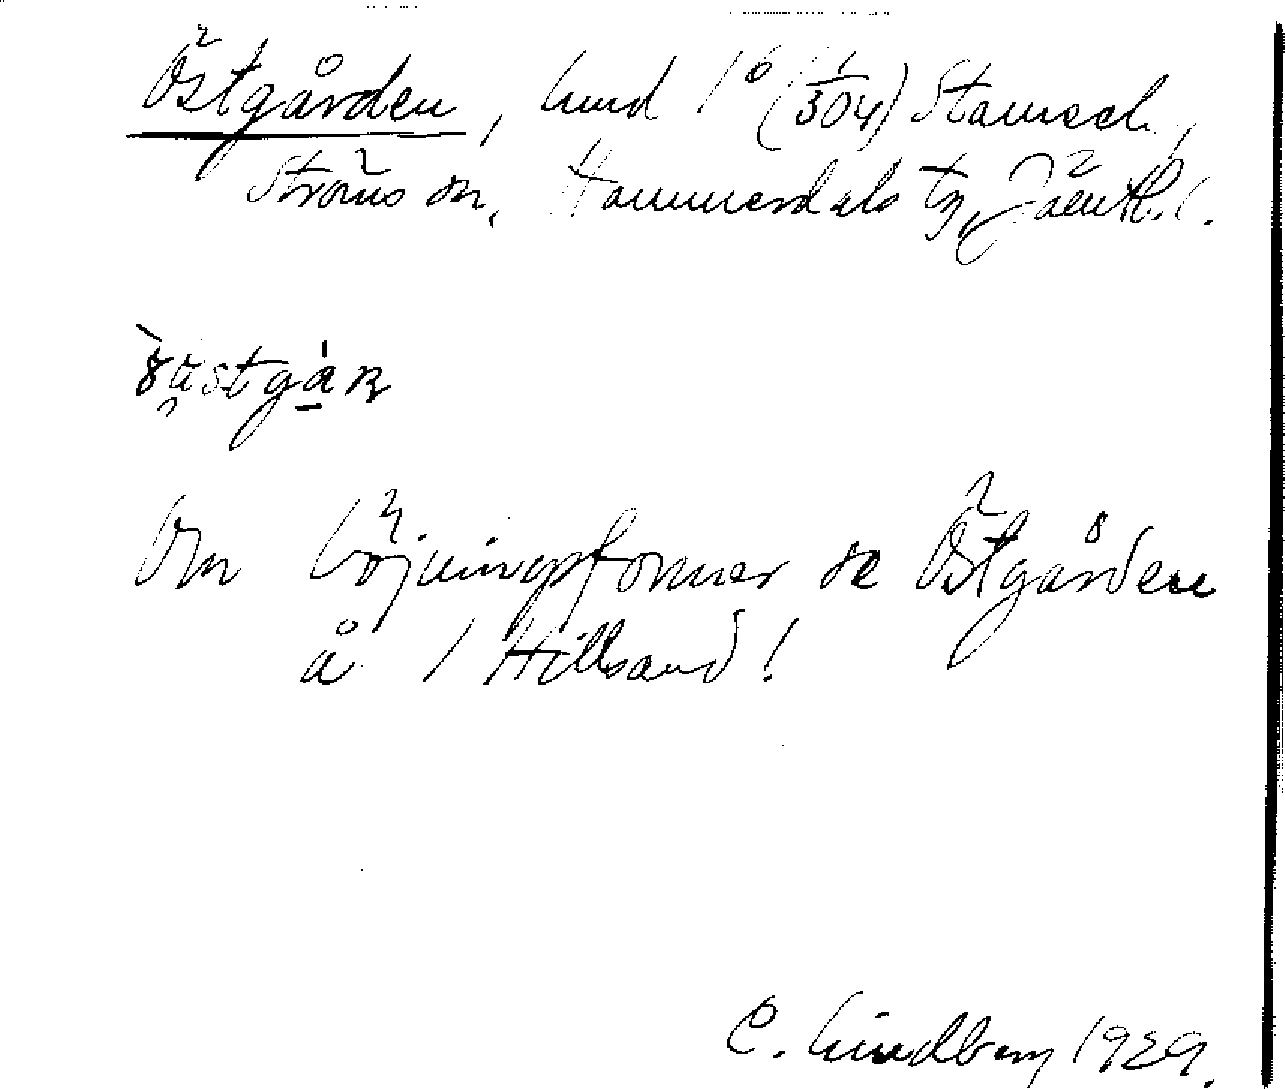 Östgården, hmd 1⁶ (1/304) Stamsele,
Ströms sn, Hammerdals tg, Jämtl. l.
Om böjningsformer se Östgården
å 1 Hillsand!
C. Lindberg 1929.